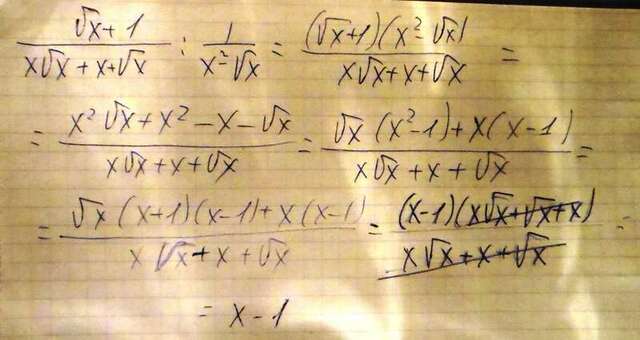 (√x + 1)/(x√x + x + √x) : 1/(x² - √x) = (√x+1)(x² - √x)/(x√x + x + √x) =
= (x²√x + x² - x - √x)/(x√x + x + √x) = (√x (x²-1) + x(x-1))/(x√x + x + √x) =
= (√x (x+1)(x-1) + x(x-1))/(x√x + x + √x) = (x-1)(x√x+√x+x)/(x√x + x + √x) =
= x - 1